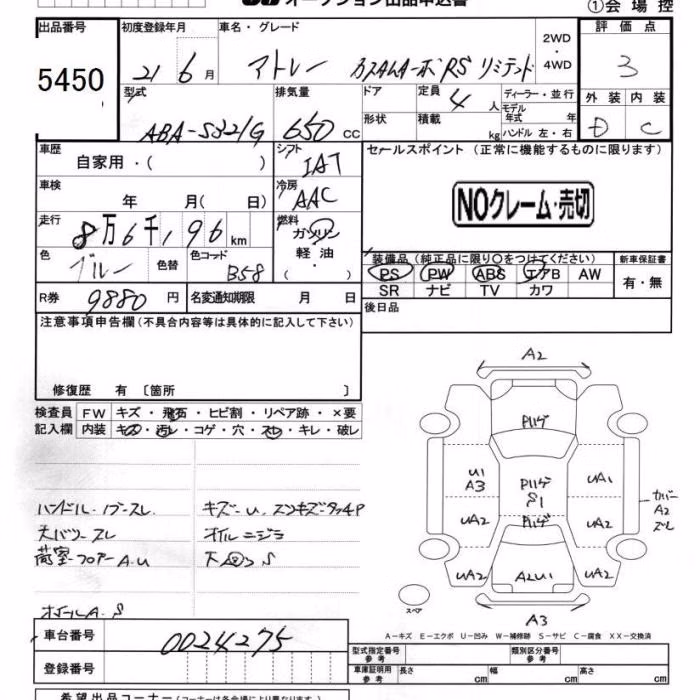 オークション出品申込書
①会場控
出品番号 初度登録年月 車名・グレード 評価点
5450 21 6月 アトレー カスタムターボRS リミテッド 2WD・4WD 3
型式 排気量 ドア 定員 4人 ディーラー・並行 外装 内装
ABA-S321G 650 cc 形状 積載 kg モデル年式 年 D C
ハンドル 左・右
車歴 自家用・( ) シフト IAT セールスポイント (正常に機能するものに限ります)
車検 年 月( 日) 冷房 AAC
NOクレーム・売切
走行 8万6千196km 燃料 ガソリン・軽油・( )
色 ブルー 色替 色コード B58
装備品(純正品に限り〇をつけてください) 新車保証書
PS PW ABS エアB AW 有・無
SR ナビ TV カワ
R券 9880円 名変通知期限 月 日 後日品
注意事項申告欄(不具合内容等は具体的に記入して下さい)
修復歴 有 〔箇所 〕
検査員 FW キズ・飛石・ヒビ割・リペア跡・×要
記入欄 内装 キズ・汚レ・コゲ・穴・スレ・キレ・破レ
ハンドル・ノブスレ キズ-U.
天バリスレ オイルニジミ
荷室フロアーA.U 下 S
ホイールA.S
A2
P111ゲ
U1 A3 P111ゲ S1 UA1
カバーA2スレ
UA2 P111ゲ UA2
UA2 A2U1 UA2
スペア
A3
A-キズ E-エクボ U-凹み W-補修跡 S-サビ C-腐食 XX-交換済
車台番号 0024275
登録番号
型式指定番号 参考 類別区分番号 参考
車庫証明用 参考 長さ cm 幅 cm 高さ cm
希望出品コーナー(コーナーは各会場により異なります)